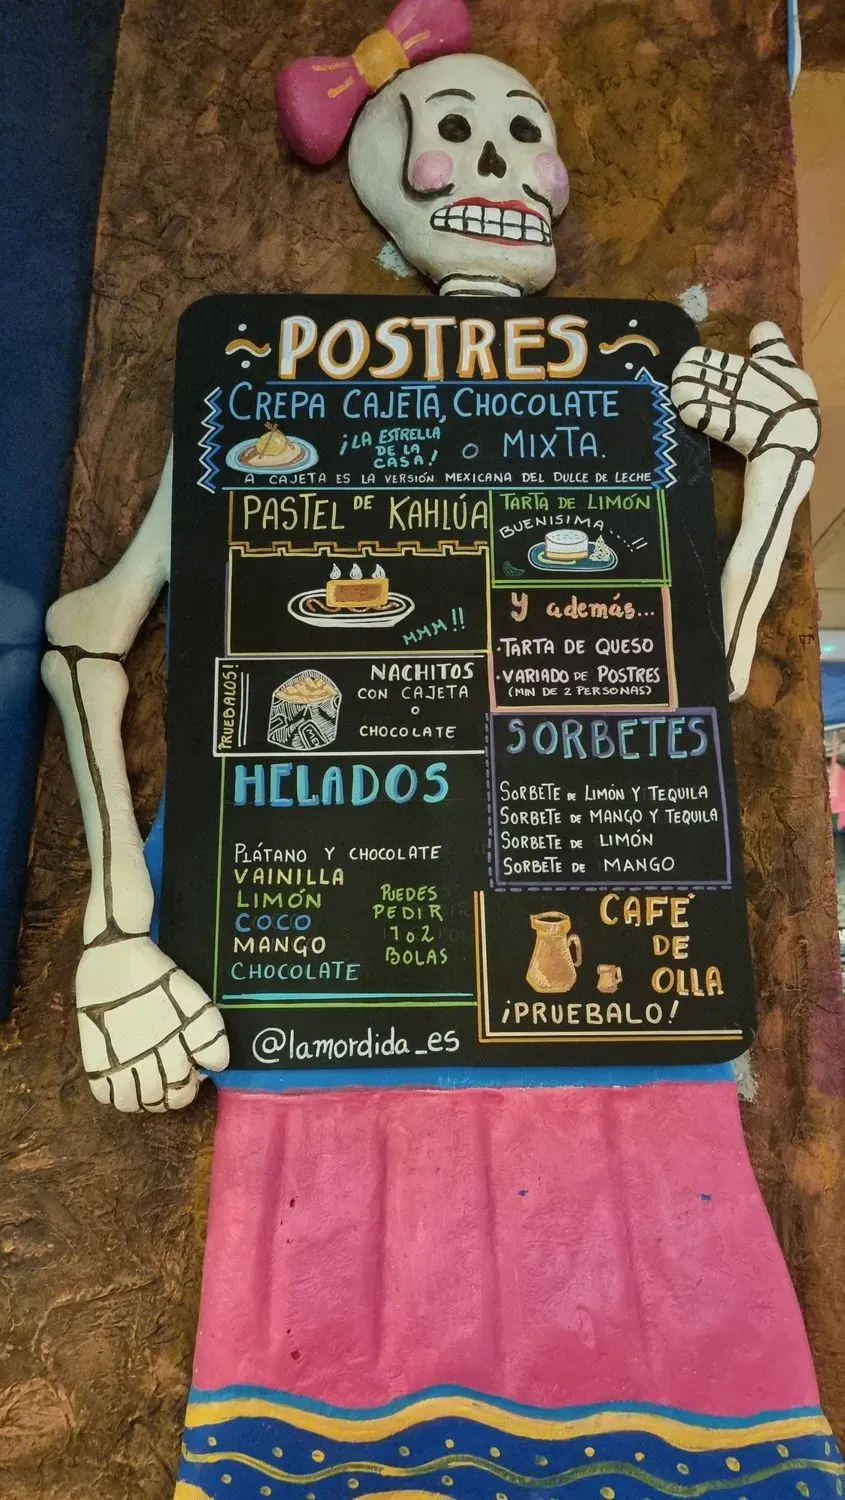 POSTRES
CREPA CAJETA, CHOCOLATE
¡LA ESTRELLA
DE LA
CASA!
O MIXTA.
A CAJETA ES LA VERSIÓN MEXICANA DEL DULCE DE LECHE
PASTEL DE KAHLÚA
MMM!!
TARTA DE LIMÓN
BUENISIMA...!!
Y además...
·TARTA DE QUESO
·VARIADO DE POSTRES
(MIN DE 2 PERSONAS)
PRUEBALOS!
NACHITOS
CON CAJETA
O
CHOCOLATE
SORBETES
SORBETE DE LIMÓN Y TEQUILA
SORBETE DE MANGO Y TEQUILA
SORBETE DE LIMÓN
SORBETE DE MANGO
HELADOS
PLÁTANO Y CHOCOLATE
VAINILLA
LIMÓN
COCO
MANGO
CHOCOLATE
PUEDES
PEDIR
1 o 2
BOLAS
CAFÉ
DE
OLLA
¡PRUEBALO!
@lamordida_es